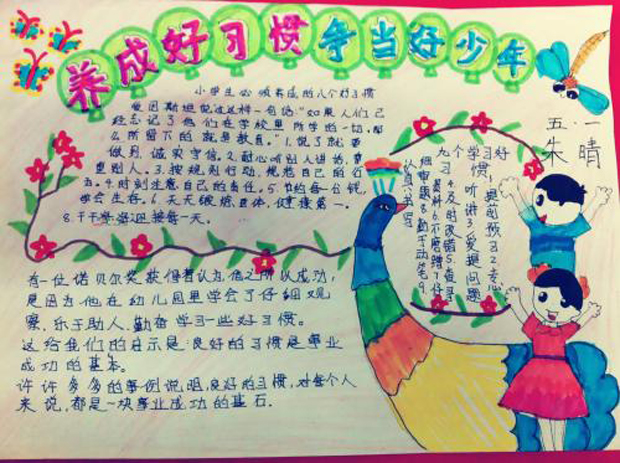 养成好习惯争当好少年
小学生必须养成的八个好习惯
爱因斯坦说过这样一句话:"如果人们已
经忘记了他们在学校里所学的一切,那
么所留下的就是教育。"1.说了就要
做到 诚实守信。2.耐心听别人讲话,尊
重别人。3.按规则行动,规范自己的行
为。4.时刻注意自己的责任。5.节约每一分钱,
学会生存。6.天天锻炼身体,健康第一。
8.干干净净迎接每一天。
有一位诺贝尔奖获得者认为他之所以成功,
是因为他在幼儿园里学会了仔细观
察、乐于助人、勤奋学习一些好习惯。
这给我们的启示是:良好的习惯是事业
成功的基本。
许许多多的事例说明,良好的习惯,对每个人
来说,都是一块事业成功的基石。
五·一
朱晴
九个学习好
习惯
1.提前预习2.专心
听讲3.爱提问题
4.及时改错5.查寻
资料6.不磨蹭7.仔
细审题8.勤于动笔9.
认真书写